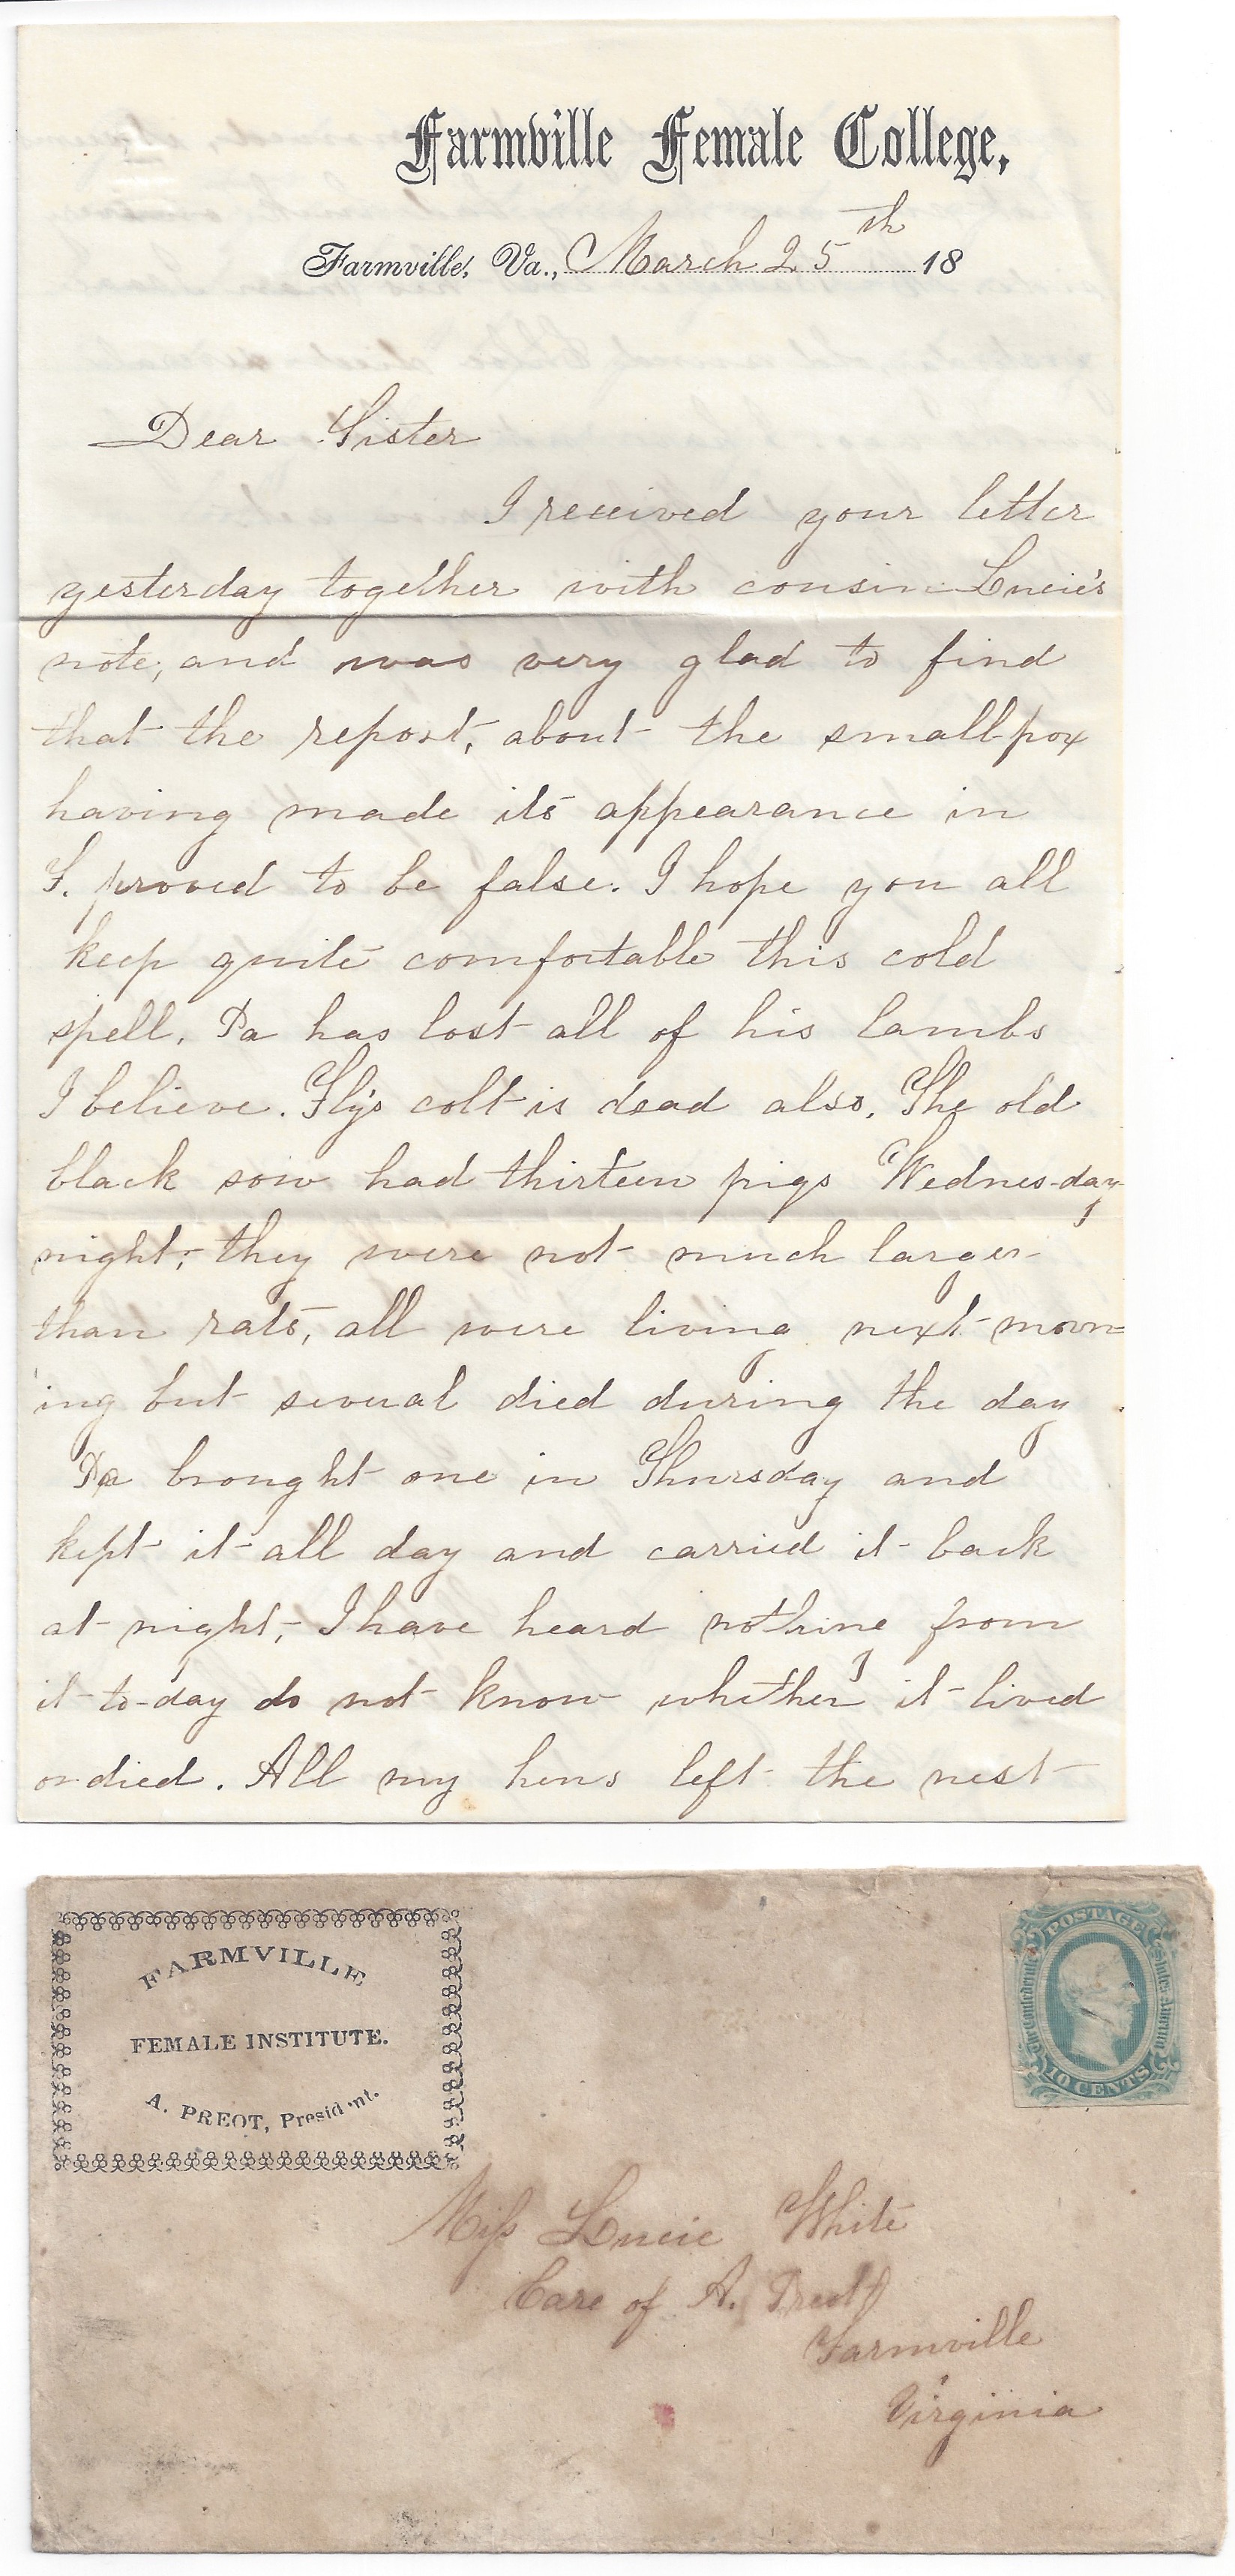 Farmville Female College,
Farmville, Va., March 25th 18
Dear Sister
I received your letter
yesterday together with cousin Lucie's
note, and was very glad to find
that the report, about the smallpox
having made its appearance in
F. proved to be false. I hope you all
keep quite comfortable this cold
spell. Pa has lost all of his lambs
I believe. Fly's colt is dead also. The old
black sow had thirteen pigs Wednes-day
night; they were not much larger
than rats, all were living next morn=
ing but several died during the day
Pa brought one in Thursday and
kept it all day and carried it back
at night, I have heard nothing from
it to-day do not know whether it lived
or died. All my hens left the nest
FARMVILLE
FEMALE INSTITUTE.
A. PREOT, Presid nt.
POSTAGE
The Confederate States America
10 CENTS
Miss Lucie White
Care of A. Preot
Farmville
Virginia